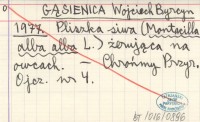 GĄSIENICA Wojciech Byrcyn
1977. Pliszka siwa (Montacilla
alba alba L.) żerująca na
owcach. - Chrońmy Przyr.
Ojcz. nr 4.
bT /016/0396